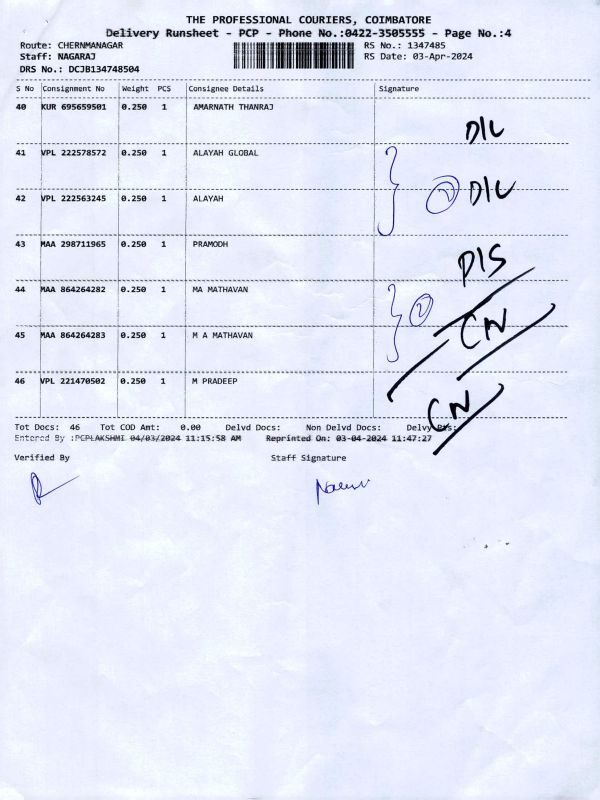 THE PROFESSIONAL COURIERS, COIMBATORE
Delivery Runsheet - PCP - Phone No.:0422-3505555 - Page No.:4
Route: CHERNMANAGAR
RS No.: 1347485
Staff: NAGARAJ
RS Date: 03-Apr-2024
DRS No.: DCJB134748504
S No Consignment No Weight PCS Consignee Details Signature
40 KUR 695659501 0.250 1 AMARNATH THANRAJ
D/L
41 VPL 222578572 0.250 1 ALAYAH GLOBAL
2 D/L
42 VPL 222563245 0.250 1 ALAYAH
43 MAA 298711965 0.250 1 PRAMODH
D/S
44 MAA 864264282 0.250 1 MA MATHAVAN
2 CN
45 MAA 864264283 0.250 1 M A MATHAVAN
46 VPL 221470502 0.250 1 M PRADEEP
CN
Tot Docs: 46 Tot COD Amt: 0.00 Delvd Docs: Non Delvd Docs: Delvy Pts:
Entered By :PCPLAKSHMI 04/03/2024 11:15:58 AM Reprinted On: 03-04-2024 11:47:27
Verified By Staff Signature